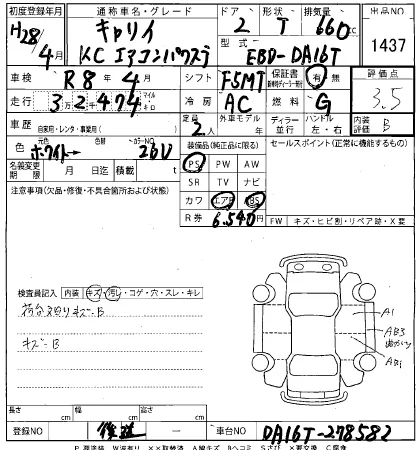 初度登録年月 通称車名・グレード ドア 形状 排気量 出品NO
H28/4月 キャリイ 2 T 660cc 1437
KC エアコンパワステ 型式 EBD-DA16T
車検 R8年4月 シフト F5MT 保証書 有 無 評価点
走行 3万2千474 マイル キロ 冷房 AC 燃料 G 3.5
車歴 自家用・レンタ・事業用( ) 定員 2人 外車モデル 年 ディーラー 並行 ハンドル 左・右 内装評価 B
色 元色 ホワイト→ 色替 カラーNO 26U 装備品(純正品に限る) セールスポイント(正常に機能するもの)
名義変更期限 月 日迄 積載 t PS PW AW
注意事項(欠品・修復・不具合箇所および状態) SR TV ナビ
カワ エアB ABS
R券 6,540円 FW キズ・ヒビ割・リペア跡・X要
検査員記入 内装 キズ・汚レ・コゲ・穴・スレ・キレ
荷台廻りキズ-B
キズ-B
A1
AB3
AB1
長さ cm 幅 cm 高さ cm
登録NO 後送 - 車台NO DA16T-278582